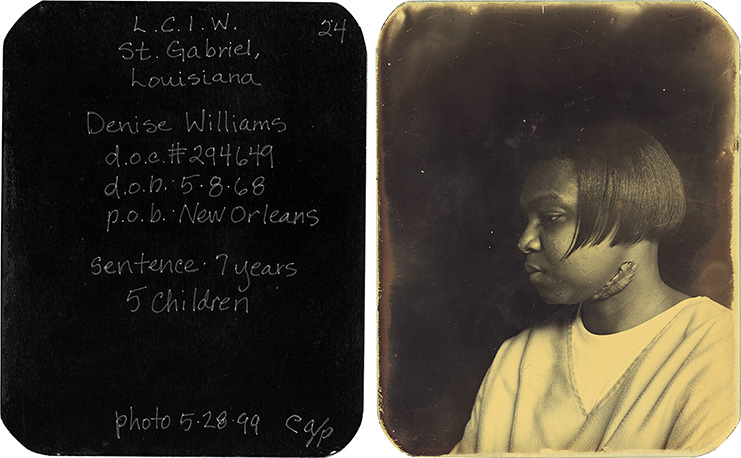 L.C.I.W. 24
St. Gabriel,
Louisiana
Denise Williams
d.o.c.#294649
d.o.b. 5·8·68
p.o.b. New Orleans
sentence· 7 years
5 Children
photo 5·28·99